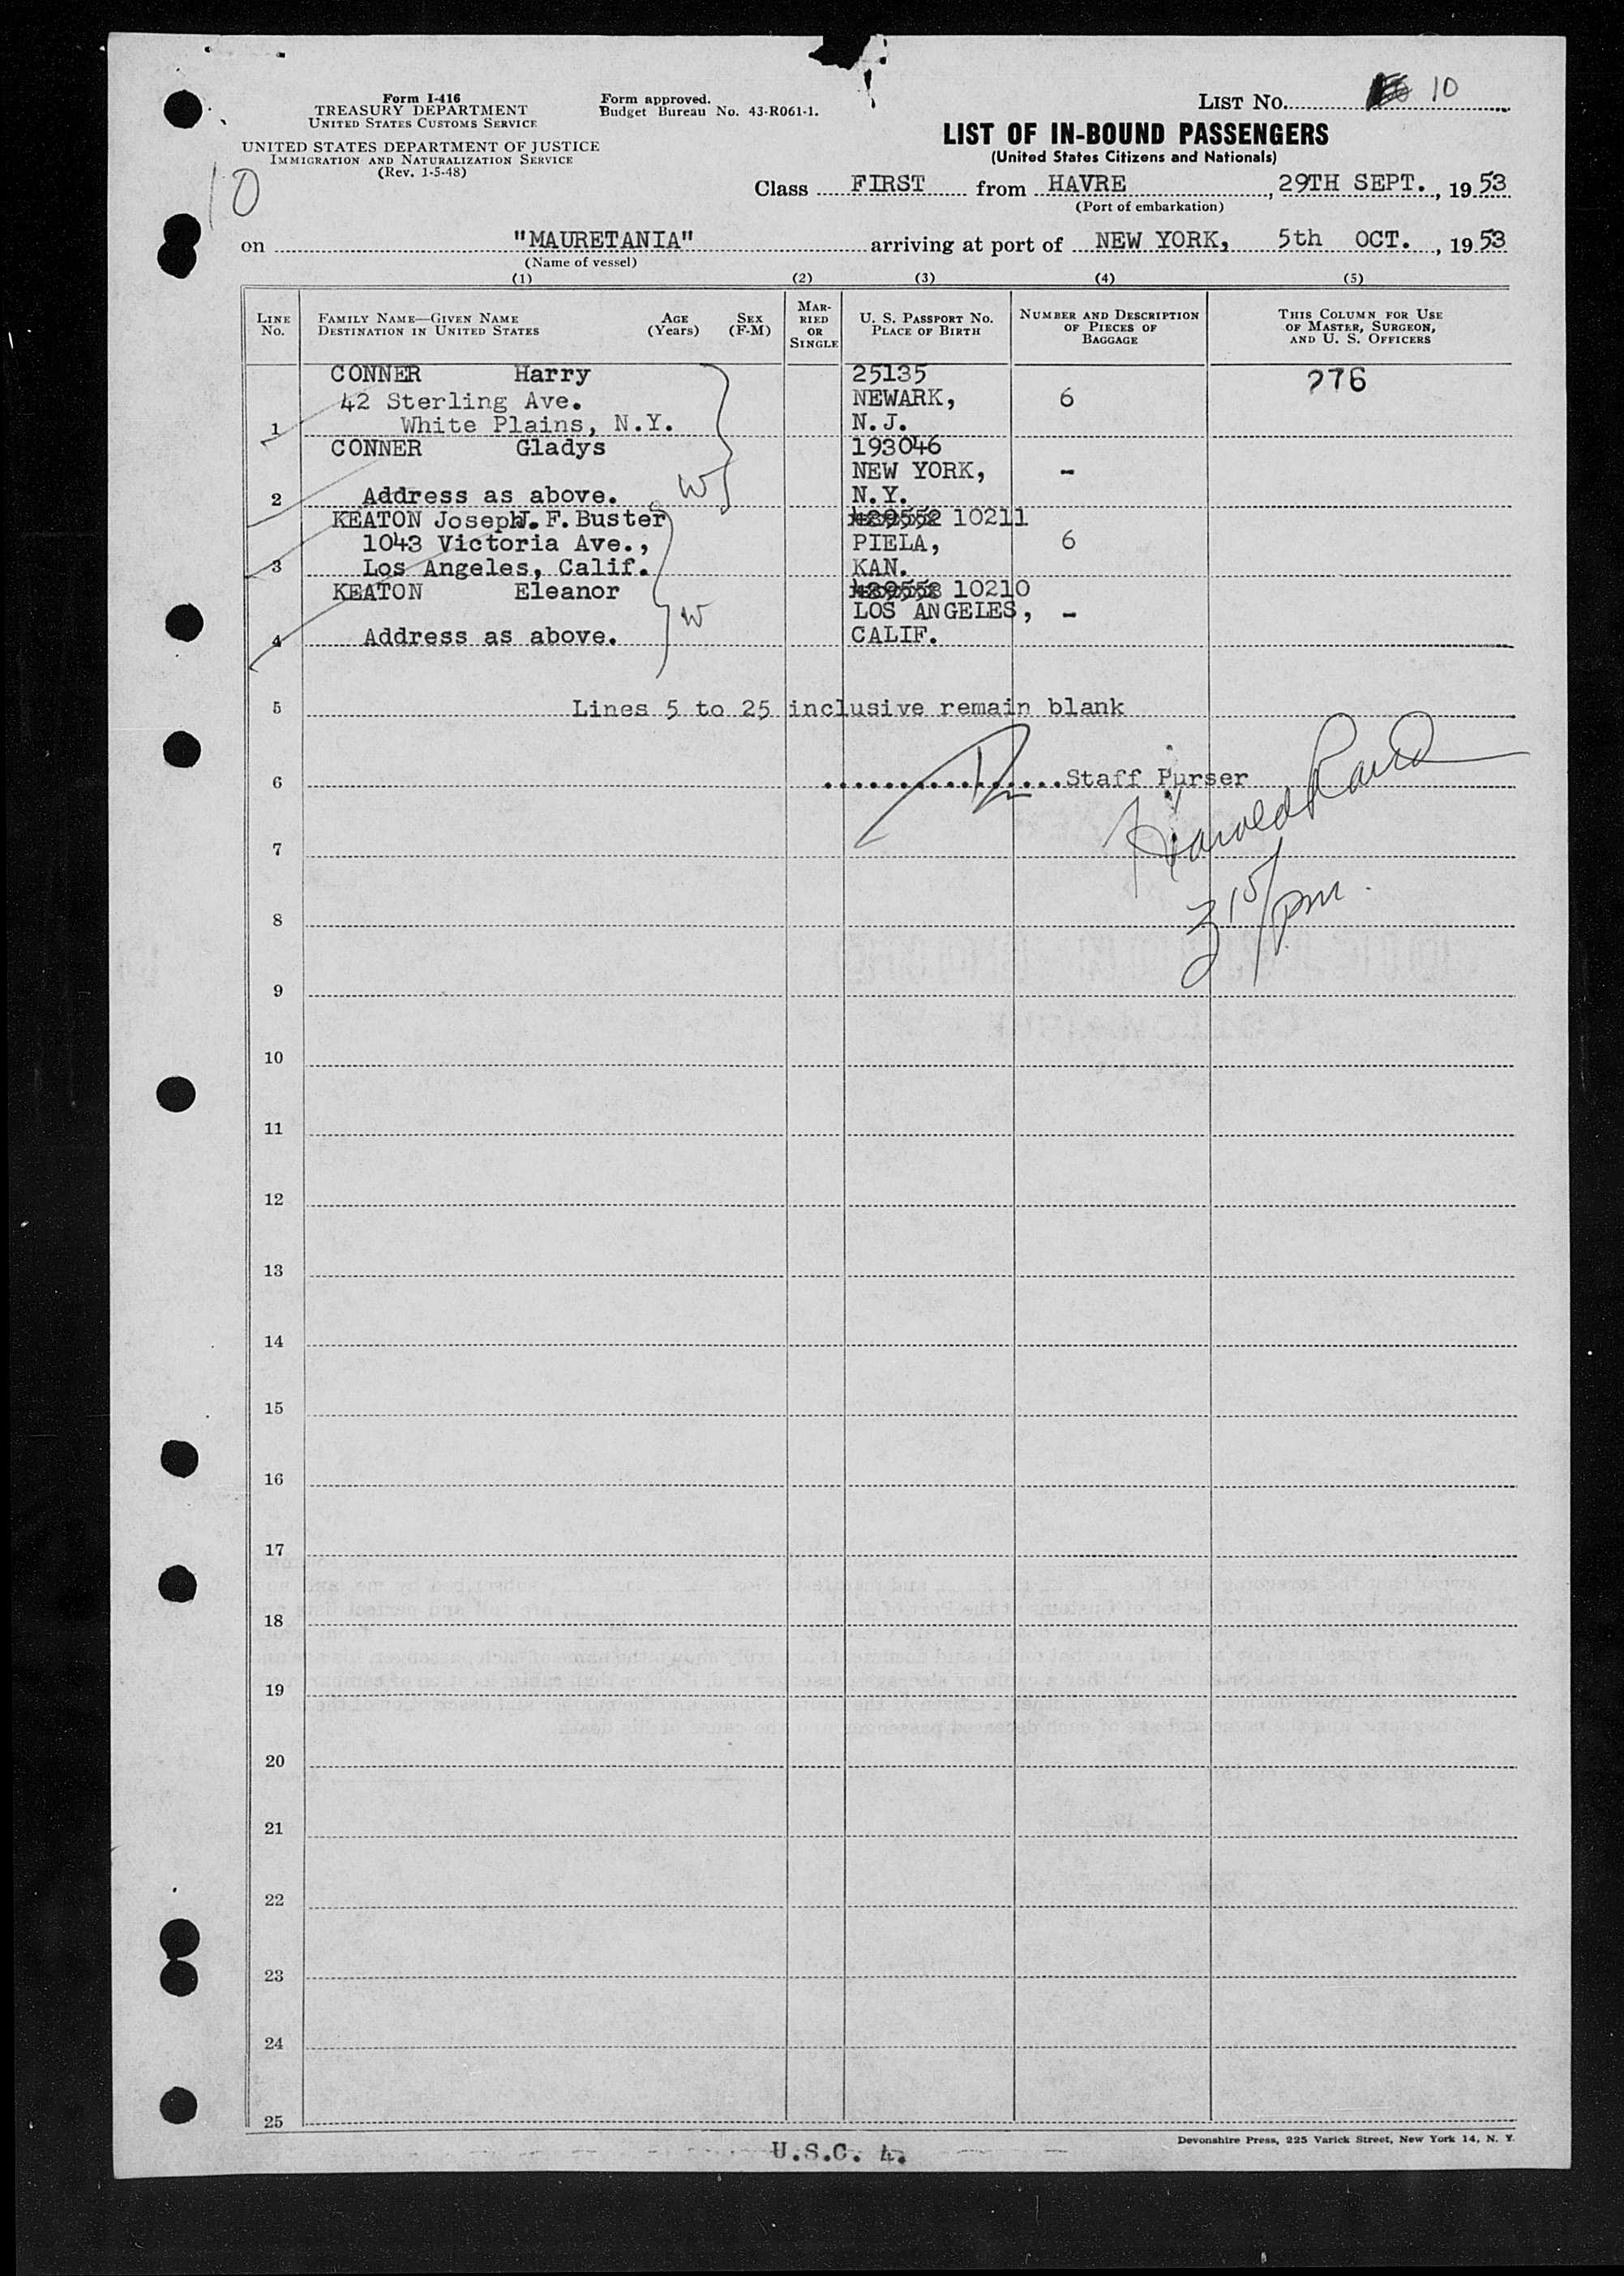 Form I-416
TREASURY DEPARTMENT
UNITED STATES CUSTOMS SERVICE
UNITED STATES DEPARTMENT OF JUSTICE
IMMIGRATION AND NATURALIZATION SERVICE
(Rev. 1-5-48)
10
Form approved.
Budget Bureau No. 43-R061-1.
LIST NO. 10
LIST OF IN-BOUND PASSENGERS
(United States Citizens and Nationals)
Class FIRST from HAVRE, 29TH SEPT., 1953
(Port of embarkation)
on "MAURETANIA" arriving at port of NEW YORK, 5th OCT., 1953
(Name of vessel)
(1) (2) (3) (4) (5)
LINE NO.
FAMILY NAME—GIVEN NAME
DESTINATION IN UNITED STATES
AGE (Years)
SEX (F-M)
MARRIED OR SINGLE
U. S. PASSPORT NO.
PLACE OF BIRTH
NUMBER AND DESCRIPTION OF PIECES OF BAGGAGE
THIS COLUMN FOR USE OF MASTER, SURGEON, AND U. S. OFFICERS
CONNER Harry 25135 276
42 Sterling Ave. NEWARK, 6
1 White Plains, N.Y. N.J.
CONNER Gladys 193046
NEW YORK, -
2 Address as above. W N.Y.
KEATON Joseph J. F. Buster 429552 10211
1043 Victoria Ave., PIELA, 6
3 Los Angeles, Calif. KAN.
KEATON Eleanor 429553 10210
W LOS ANGELES, -
4 Address as above. CALIF.
5 Lines 5 to 25 inclusive remain blank
6 Staff Purser
Harold
7
3 15/pm.
8
9
10
11
12
13
14
15
16
17
18
19
20
21
22
23
24
25
Devonshire Press, 225 Varick Street, New York 14, N. Y.
U.S.C. 4.